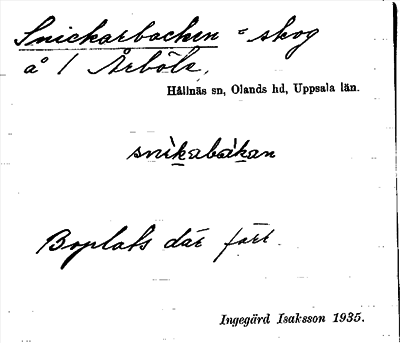 Snickarbacken = skog
å 1 Årböle.
Hållnäs sn, Olands hd, Uppsala län.
snìkabàkan
Boplats där förr.
Ingegärd Isaksson 1935.